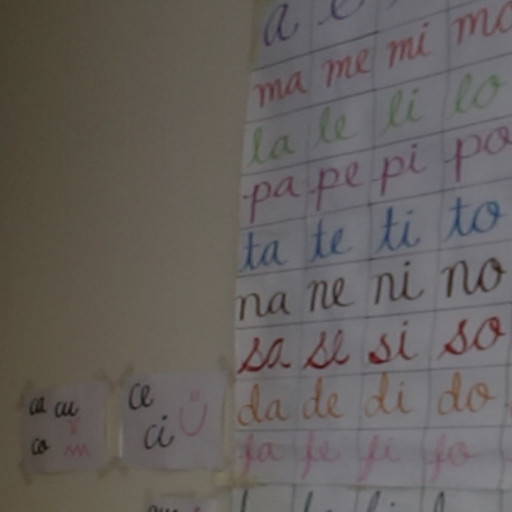 a e
ma me mi mo
la le li lo
pa pe pi po
ta te ti to
na ne ni no
sa se si so
da de di do
fa fe fi fo
ca cu
co
ce
ci